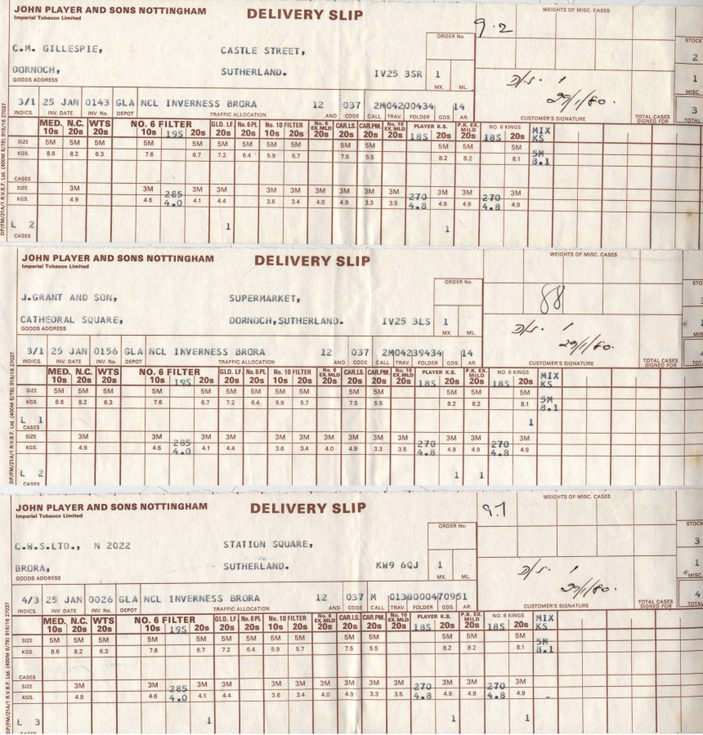 JOHN PLAYER AND SONS NOTTINGHAM DELIVERY SLIP 9.2 WEIGHTS OF MISC. CASES
Imperial Tobacco Limited
ORDER No.
STOCK
C.M. GILLESPIE, CASTLE STREET, 2
DORNOCH, SUTHERLAND. IV25 3SR 1 D/S. 1
GOODS ADDRESS MX. ML. 29/1/80.
3/1 25 JAN 0143 GLA NCL INVERNESS BRORA 12 037 2M04200434 14 3
INDICS. INV. DATE INV. No. DEPOT TRAFFIC ALLOCATION AND CODE CALL TRAV. FOLDER GDS. AR. CUSTOMER'S SIGNATURE TOTAL CASES SIGNED FOR TOTAL
MED. N.C. WTS NO. 6 FILTER GLD. LF. No.6 Pl. No. 10 FILTER No. 6 EX. MLD CAR.LS. CAR.PM. No. 10 EX. MLD PLAYER K.S. P.K. EX. MILD NO. 6 KINGS MIX
10s 20s 20s 10s 19S 20s 20s 20s 10s 20s 20s 20s 20s 20s 18S 20s 20s 18S 20s KS
SIZE 5M 5M 5M 5M 5M 5M 5M 5M 5M 5M 5M 5M 5M 5M 5M
KGS. 8.6 8.2 6.3 7.6 6.7 7.2 6.4 5.9 5.7 7.5 5.5 8.2 8.2 8.1 8.1
CASES
SIZE 3M 3M 285 3M 3M 3M 3M 3M 3M 3M 3M 270 3M 3M 270 3M
KGS. 4.9 4.6 4.0 4.1 4.4 3.6 3.4 4.0 4.9 3.3 3.5 4.8 4.9 4.9 4.8 4.9
L 2 1 1
CASES
DP/FM/21A/1 R.V.B.F. Ltd. (400M 6/78) 918/16 27037
JOHN PLAYER AND SONS NOTTINGHAM DELIVERY SLIP WEIGHTS OF MISC. CASES
Imperial Tobacco Limited
ORDER No.
J.GRANT AND SON, SUPERMARKET, 88
CATHEDRAL SQUARE, DORNOCH,SUTHERLAND. IV25 3LS 1 D/S. 1
GOODS ADDRESS MX. ML. 29/1/80.
3/1 25 JAN 0156 GLA NCL INVERNESS BRORA 12 037 2M04239434 14
INDICS. INV. DATE INV. No. DEPOT TRAFFIC ALLOCATION AND CODE CALL TRAV. FOLDER GDS. AR. CUSTOMER'S SIGNATURE TOTAL CASES SIGNED FOR
MED. N.C. WTS NO. 6 FILTER GLD. LF. No.6 Pl. No. 10 FILTER No. 6 EX. MLD CAR.LS. CAR.PM. No. 10 EX. MLD PLAYER K.S. P.K. EX. MILD NO. 6 KINGS MIX
10s 20s 20s 10s 19S 20s 20s 20s 10s 20s 20s 20s 20s 20s 18S 20s 20s 18S 20s KS
SIZE 5M 5M 5M 5M 5M 5M 5M 5M 5M 5M 5M 5M 5M 5M 5M
KGS. 8.6 8.2 6.3 7.6 6.7 7.2 6.4 5.9 5.7 7.5 5.5 8.2 8.2 8.1 8.1
L 1 1
CASES
SIZE 3M 3M 285 3M 3M 3M 3M 3M 3M 3M 3M 270 3M 3M 270 3M
KGS. 4.9 4.6 4.0 4.1 4.4 3.6 3.4 4.0 4.9 3.3 3.5 4.8 4.9 4.9 4.8 4.9
L 2 1 1
CASES
DP/FM/21A/1 R.V.B.F. Ltd. (400M 6/78) 918/16 27037
JOHN PLAYER AND SONS NOTTINGHAM DELIVERY SLIP 9.7 WEIGHTS OF MISC. CASES
Imperial Tobacco Limited
ORDER No.
STOCK
C.W.S.LTD., N 2022 STATION SQUARE, 3
BRORA, SUTHERLAND. KW9 6QJ 1 D/S. 1 1
GOODS ADDRESS MX. ML. 29/1/80. MISC.
4/3 25 JAN 0026 GLA NCL INVERNESS BRORA 12 037 M 0138000470951 4
INDICS. INV. DATE INV. No. DEPOT TRAFFIC ALLOCATION AND CODE CALL TRAV. FOLDER GDS. AR. CUSTOMER'S SIGNATURE TOTAL CASES SIGNED FOR TOTAL
MED. N.C. WTS NO. 6 FILTER GLD. LF. No.6 Pl. No. 10 FILTER No. 6 EX. MLD CAR.LS. CAR.PM. No. 10 EX. MLD PLAYER K.S. P.K. EX. MILD NO. 6 KINGS MIX
10s 20s 20s 10s 19S 20s 20s 20s 10s 20s 20s 20s 20s 20s 18S 20s 20s 18S 20s KS
SIZE 5M 5M 5M 5M 5M 5M 5M 5M 5M 5M 5M 5M 5M 5M 5M
KGS. 8.6 8.2 6.3 7.6 6.7 7.2 6.4 5.9 5.7 7.5 5.5 8.2 8.2 8.1 8.1
CASES
SIZE 3M 3M 285 3M 3M 3M 3M 3M 3M 3M 3M 270 3M 3M 270 3M
KGS. 4.9 4.6 4.0 4.1 4.4 3.6 3.4 4.0 4.9 3.3 3.5 4.8 4.9 4.9 4.8 4.9
L 3 1 1 1
CASES
DP/FM/21A/1 R.V.B.F. Ltd. (400M 6/78) 918/16 27037